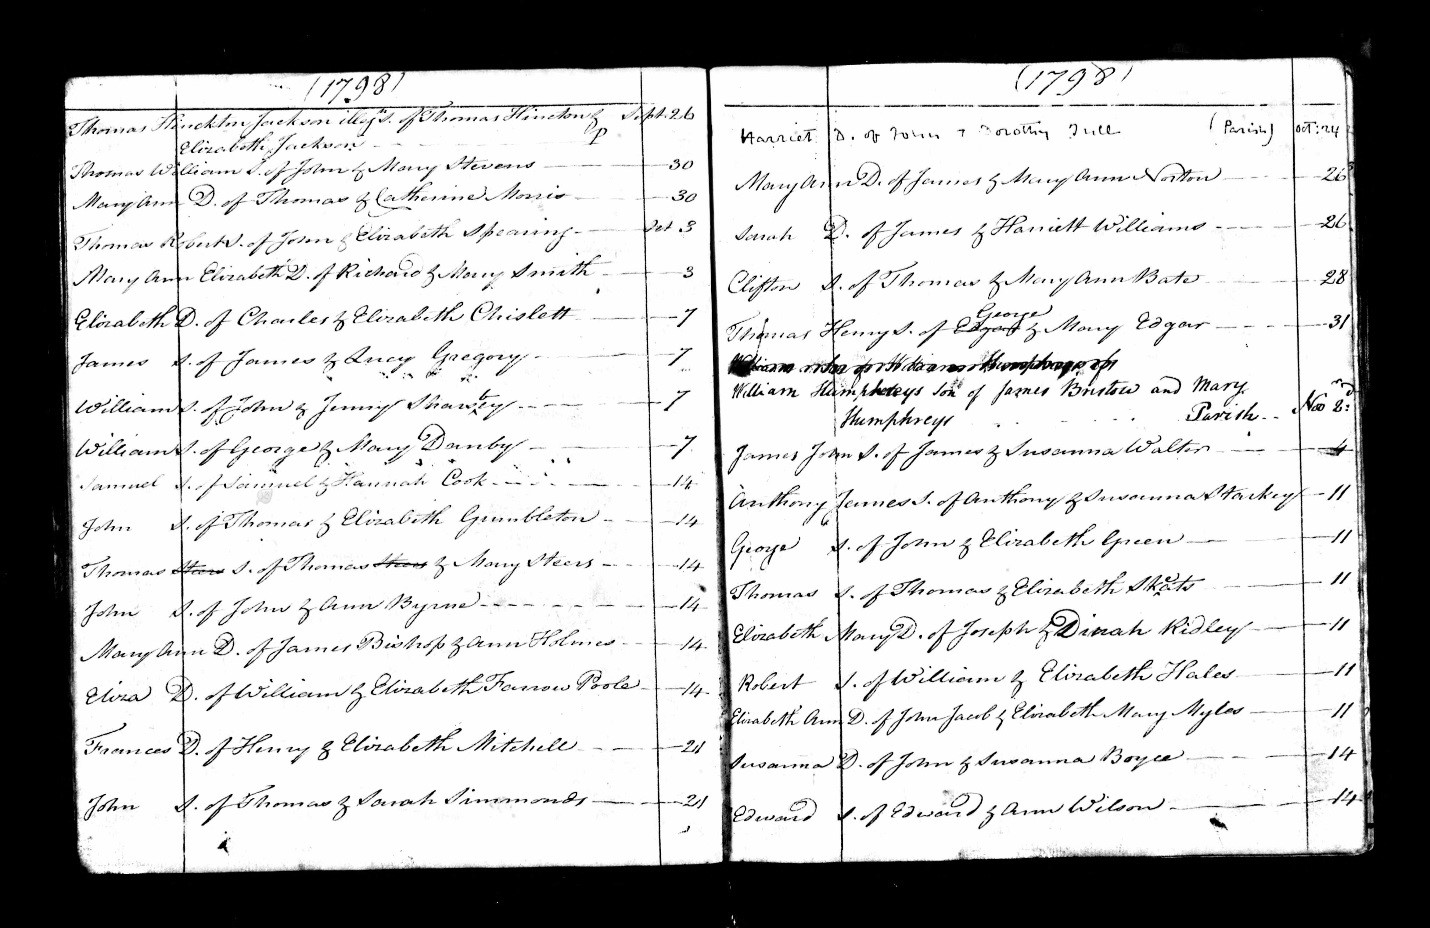 (1798)
Thomas Hinckton Jackson illeg. S. of Thomas Hinckton & Sept. 26
Elizabeth Jackson - - P
Thomas William S. of John & Mary Stevens - 30
Mary Ann D. of Thomas & Catherine Morris - 30
Thomas Robert S. of John & Elizabeth Spearing - Oct 3
Mary Ann Elizabeth D. of Richard & Mary Smith - 3
Elizabeth D. of Charles & Elizabeth Chislett - 7
James S. of James & Lucy Gregory - 7
William S. of John & Jenny - 7
William S. of George & Mary Danby - 7
Samuel S. of Samuel & Hannah Cook - 14
John S. of Thomas & Elizabeth Gumbleton - 14
Thomas Steers S. of Thomas Steers & Mary Steers - 14
John S. of John & Ann Byrne - 14
Mary Ann D. of James Bishop & Ann Holmes - 14
Eliza D. of William & Elizabeth Farrow Poole - 14
Frances D. of Henry & Elizabeth Mitchell - 21
John S. of Thomas & Sarah Simmonds - 21
(1798)
Harriet D. of John & Dorothy Tull (Parish) Oct: 24
Mary Ann D. of James & Mary Ann Norton - 26
Sarah D. of James & Harriett Williams - 26
Clifton S. of Thomas & Mary Ann Bate - 28
George
Thomas Henry S. of Edgar & Mary Edgar - 31
William Humphreys Son of James Bristow and Mary
Humphreys Parish - Nov 2nd
James John S. of James & Susanna Walter - 4
Anthony James S. of Anthony & Susanna Starkey - 11
George S. of John & Elizabeth Green - 11
Thomas S. of Thomas & Elizabeth Skeats - 11
Elizabeth Mary D. of Joseph & Dinah Ridley - 11
Robert S. of William & Elizabeth Hales - 11
Elizabeth Ann D. of John Jacob & Elizabeth Mary Myles - 11
Susanna D. of John & Susanna Boyce - 14
Edward S. of Edward & Ann Wilson - 14